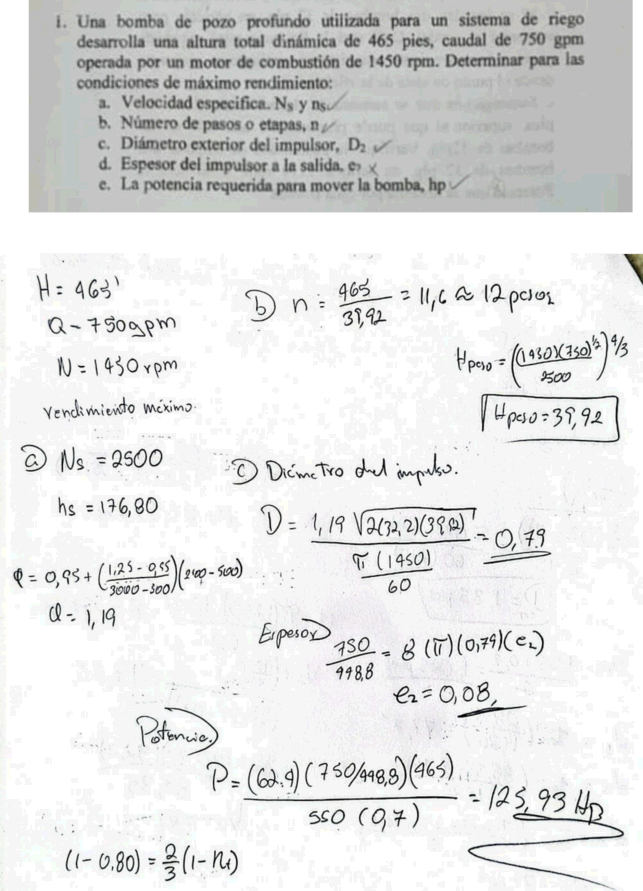 1. Una bomba de pozo profundo utilizada para un sistema de riego
desarrolla una altura total dinámica de 465 pies, caudal de 750 gpm
operada por un motor de combustión de 1450 rpm. Determinar para las
condiciones de máximo rendimiento:
a. Velocidad especifica. Ns y ns
b. Número de pasos o etapas, n
c. Diámetro exterior del impulsor, D2
d. Espesor del impulsor a la salida, e2
e. La potencia requerida para mover la bomba, hp
H = 465'
Q - 750gpm
N = 1450 rpm
rendimiento máximo.
a) Ns = 2500
hs = 176,80
φ = 0,95 + ((1,25 - 0,95)/(3000 - 500))(2400 - 500)
φ = 1,19
b) n = 465/39,92 = 11,6 ≈ 12 pasos
Hpaso = ((1450)(750)^½/2500)^4/3
Hpaso = 39,92
c) Diámetro del impulso.
D = 1,19 √2(32,2)(39,92) / (π(1450)/60) = 0,79
Espesor) 750/448,8 = 8 (π)(0,79)(e2)
e2 = 0,08,
Potencia)
P = (62.4)(750/448,8)(465) / 550 (0,7) = 125,93 Hp
(1 - 0,80) = 2/3 (1 - n1)